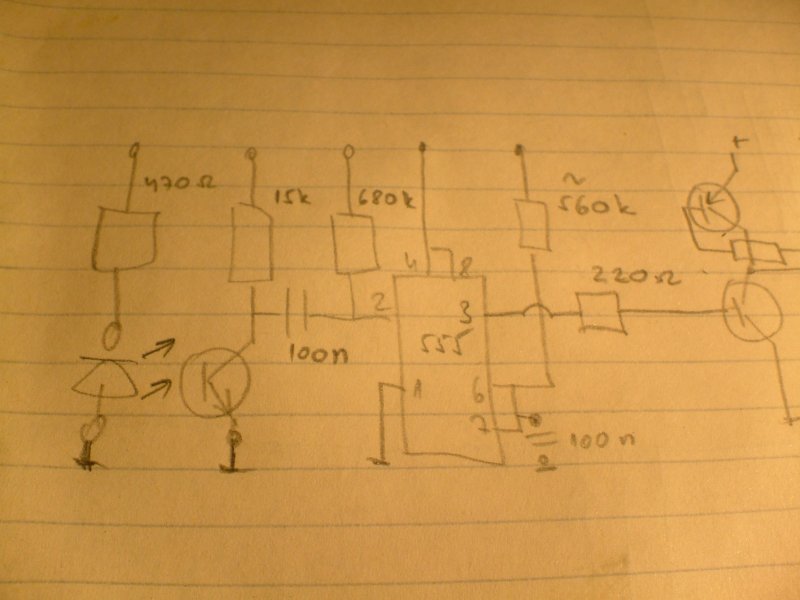 +
470Ω
15k
680k
~
560k
4
8
220Ω
2
3
100n
555
1
6
7
100n